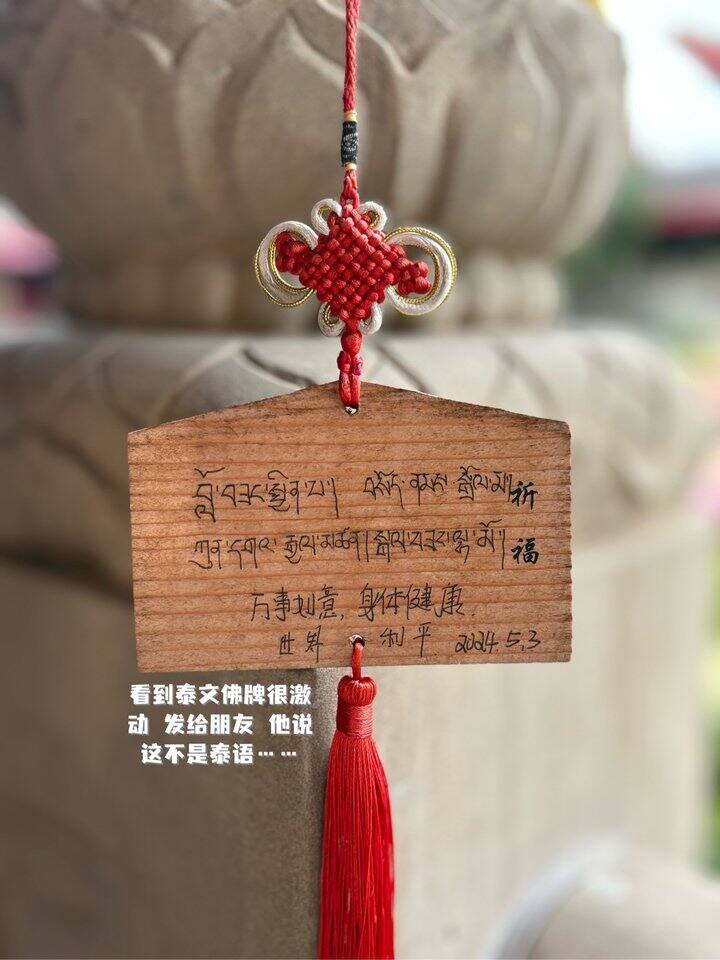 བློ་བཟང་སྦྱིན་པ། བསོད་ནམས་སྒྲོལ་མ།
ཀུན་དགའ་རྒྱལ་མཚན། སྐལ་བཟང་ལྷ་མོ།
祈福
万事如意,身体健康.
世界 和平. 2024.5.3
看到泰文佛牌很激
动 发给朋友 他说
这不是泰语……